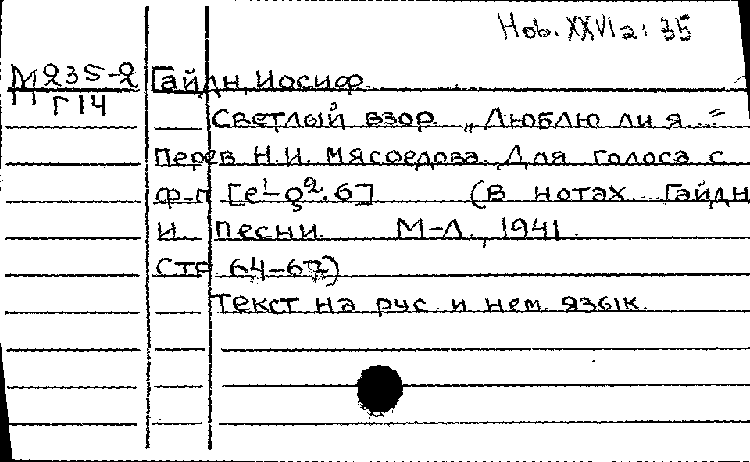 Hob. XXVIa: 35
М235-2 Гайдн, Иосиф
Г14
Светлый взор „Люблю ли я..."
Перев. Н.И. Мясоедова. Для голоса с
ф-п [e¹-g². 6] (в нотах Гайдн
И. Песни. М-Л., 1941.
Стр 64-67)
Текст на рус. и нем. языск.